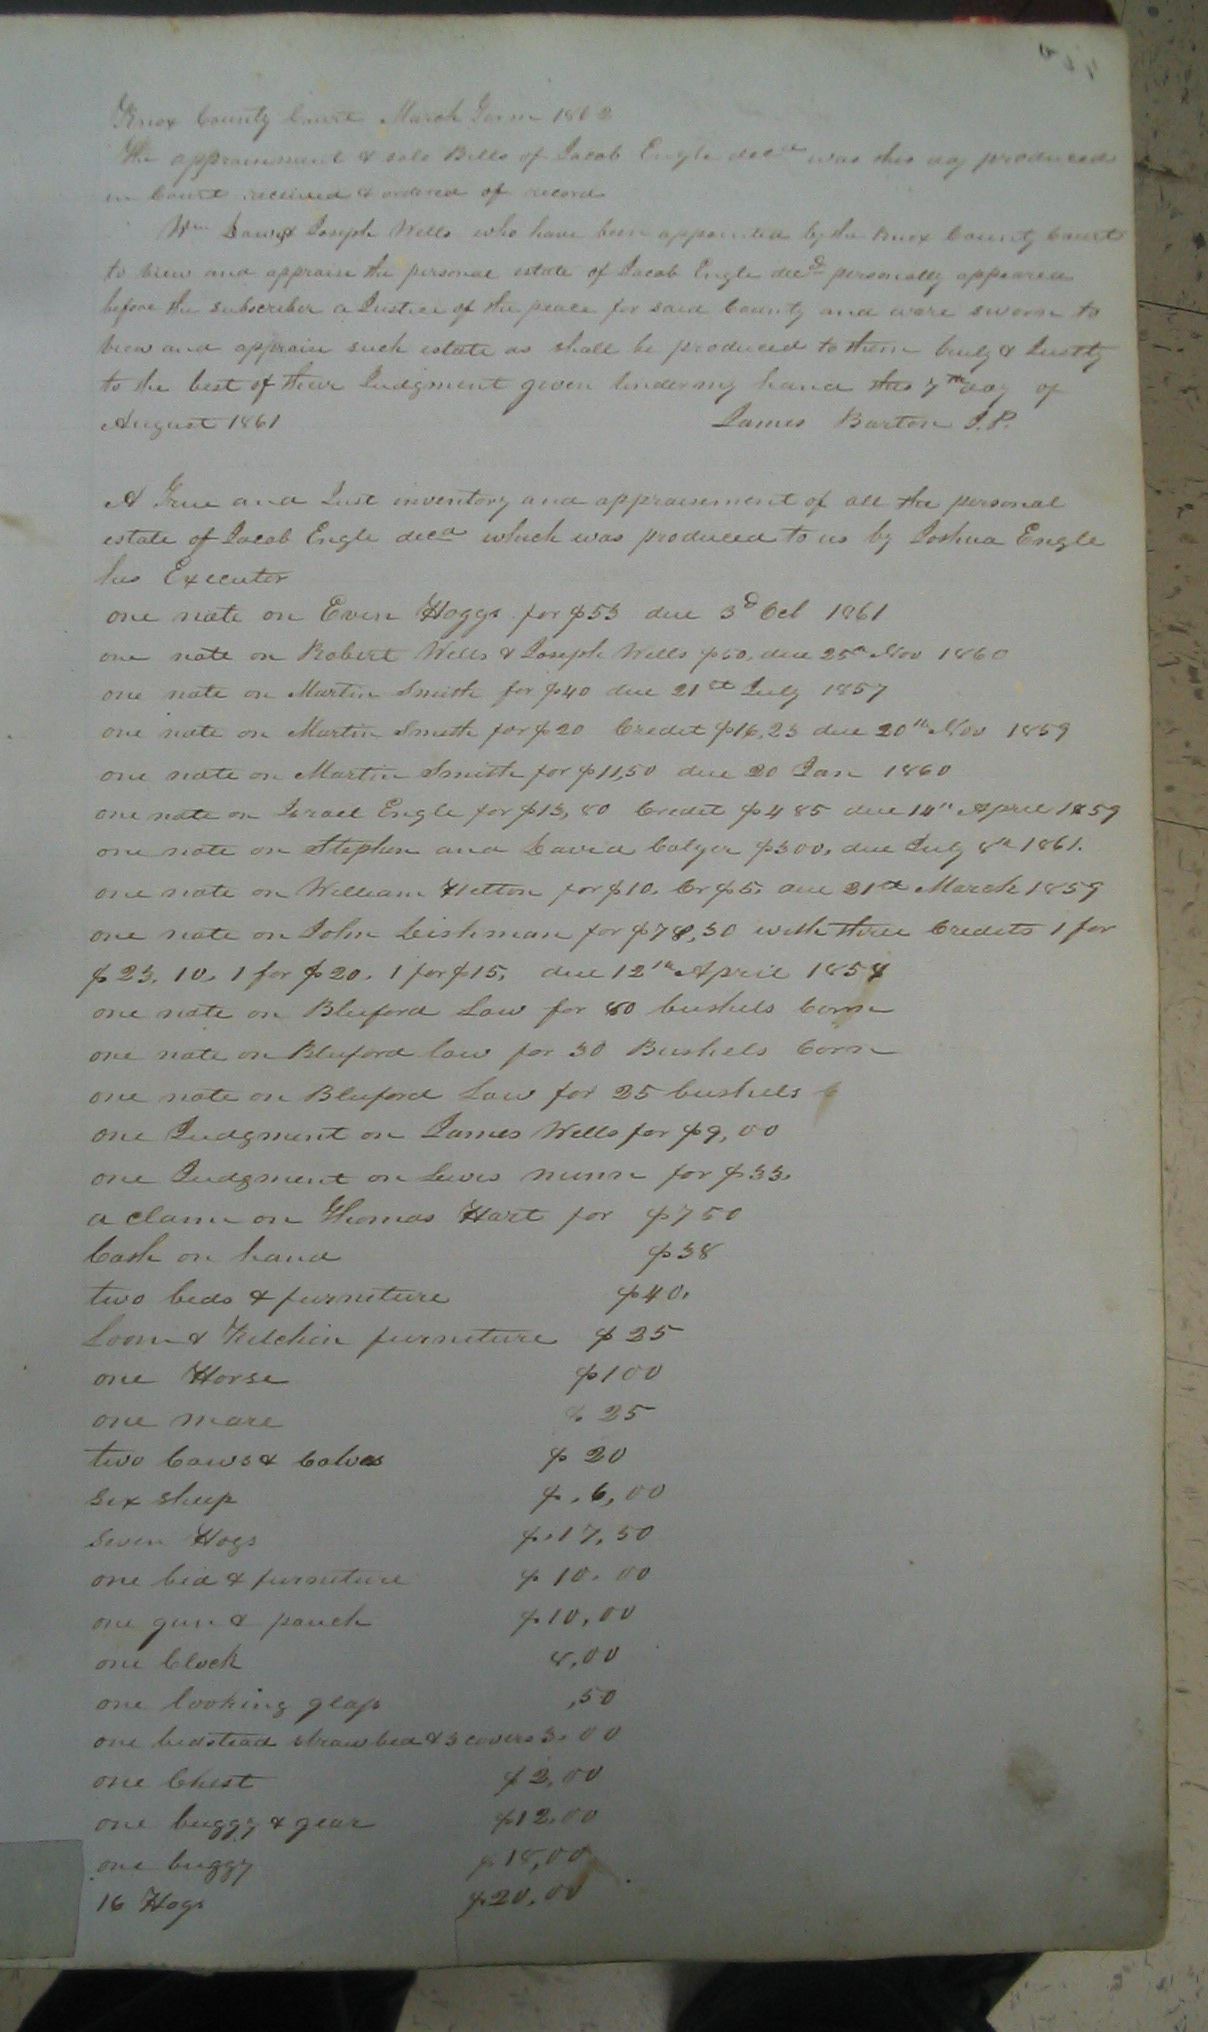 Knox County Court March Term 1862
The appraisement & sale Bills of Jacob Engle decd was this day produced
in Court received & ordered of record
Wm Law & Joseph Wells who have been appointed by the Knox County Court
to view and appraise the personal estate of Jacob Engle decd personally appeared
before the subscriber a Justice of the peace for said County and ware sworn to
view and appraise such estate as shall be produced to them truly & Justly
to the best of their Judgment given under my hand this 7th day of
August 1861 James Barton J.P.
A True and Just inventory and appraisement of all the personal
estate of Jacob Engle decd which was produced to us by Joshua Engle
his Executor
one note on Even Hoggs for $53 due 3d Oct 1861
one note on Robert Wells & Joseph Wells $50, due 25th Nov 1860
one note on Martin Smith for $40 due 21st July 1857
one note on Martin Smith for $20 Credit $16,23 due 20th Nov 1859
one note on Martin Smith for $11,50 due 20 Jan 1860
one note on Israel Engle for $13,80 Credit $485 due 14th April 1859
one note on Stephen and David Golyer $300, due July 8th 1861.
one note on William Hetton for $10. Cr $5. due 21st March 1859
one note on John Cishman for $78,30 with three Credits 1 for
$23.10. 1 for $20. 1 for $15. due 12th April 1858
one note on Bluford Law for 80 bushels Corn
one note on Bluford law for 30 Bushels Corn
one note on Bluford Law for 25 bushels C
one Judgment on James Wells for $9,00
one Judgment on Lewis nunn for $33.
a claim on Thomas Hart for $750
Cash on hand $38
two beds & furniture $40.
Loom & Kitchin furniture $25
one Horse $100
one mare $25
two Cows & Calves $20
six sheep $.6,00
seven Hogs $.17,50
one bed & furniture $10.00
one gun & pouch $10,00
one Clock 8,00
one looking glass ,50
one bedstead straw bed & 3 covers 3.00
one Chest $2,00
one buggy & gear $12.00
one buggy $18,00
16 Hogs $20.00